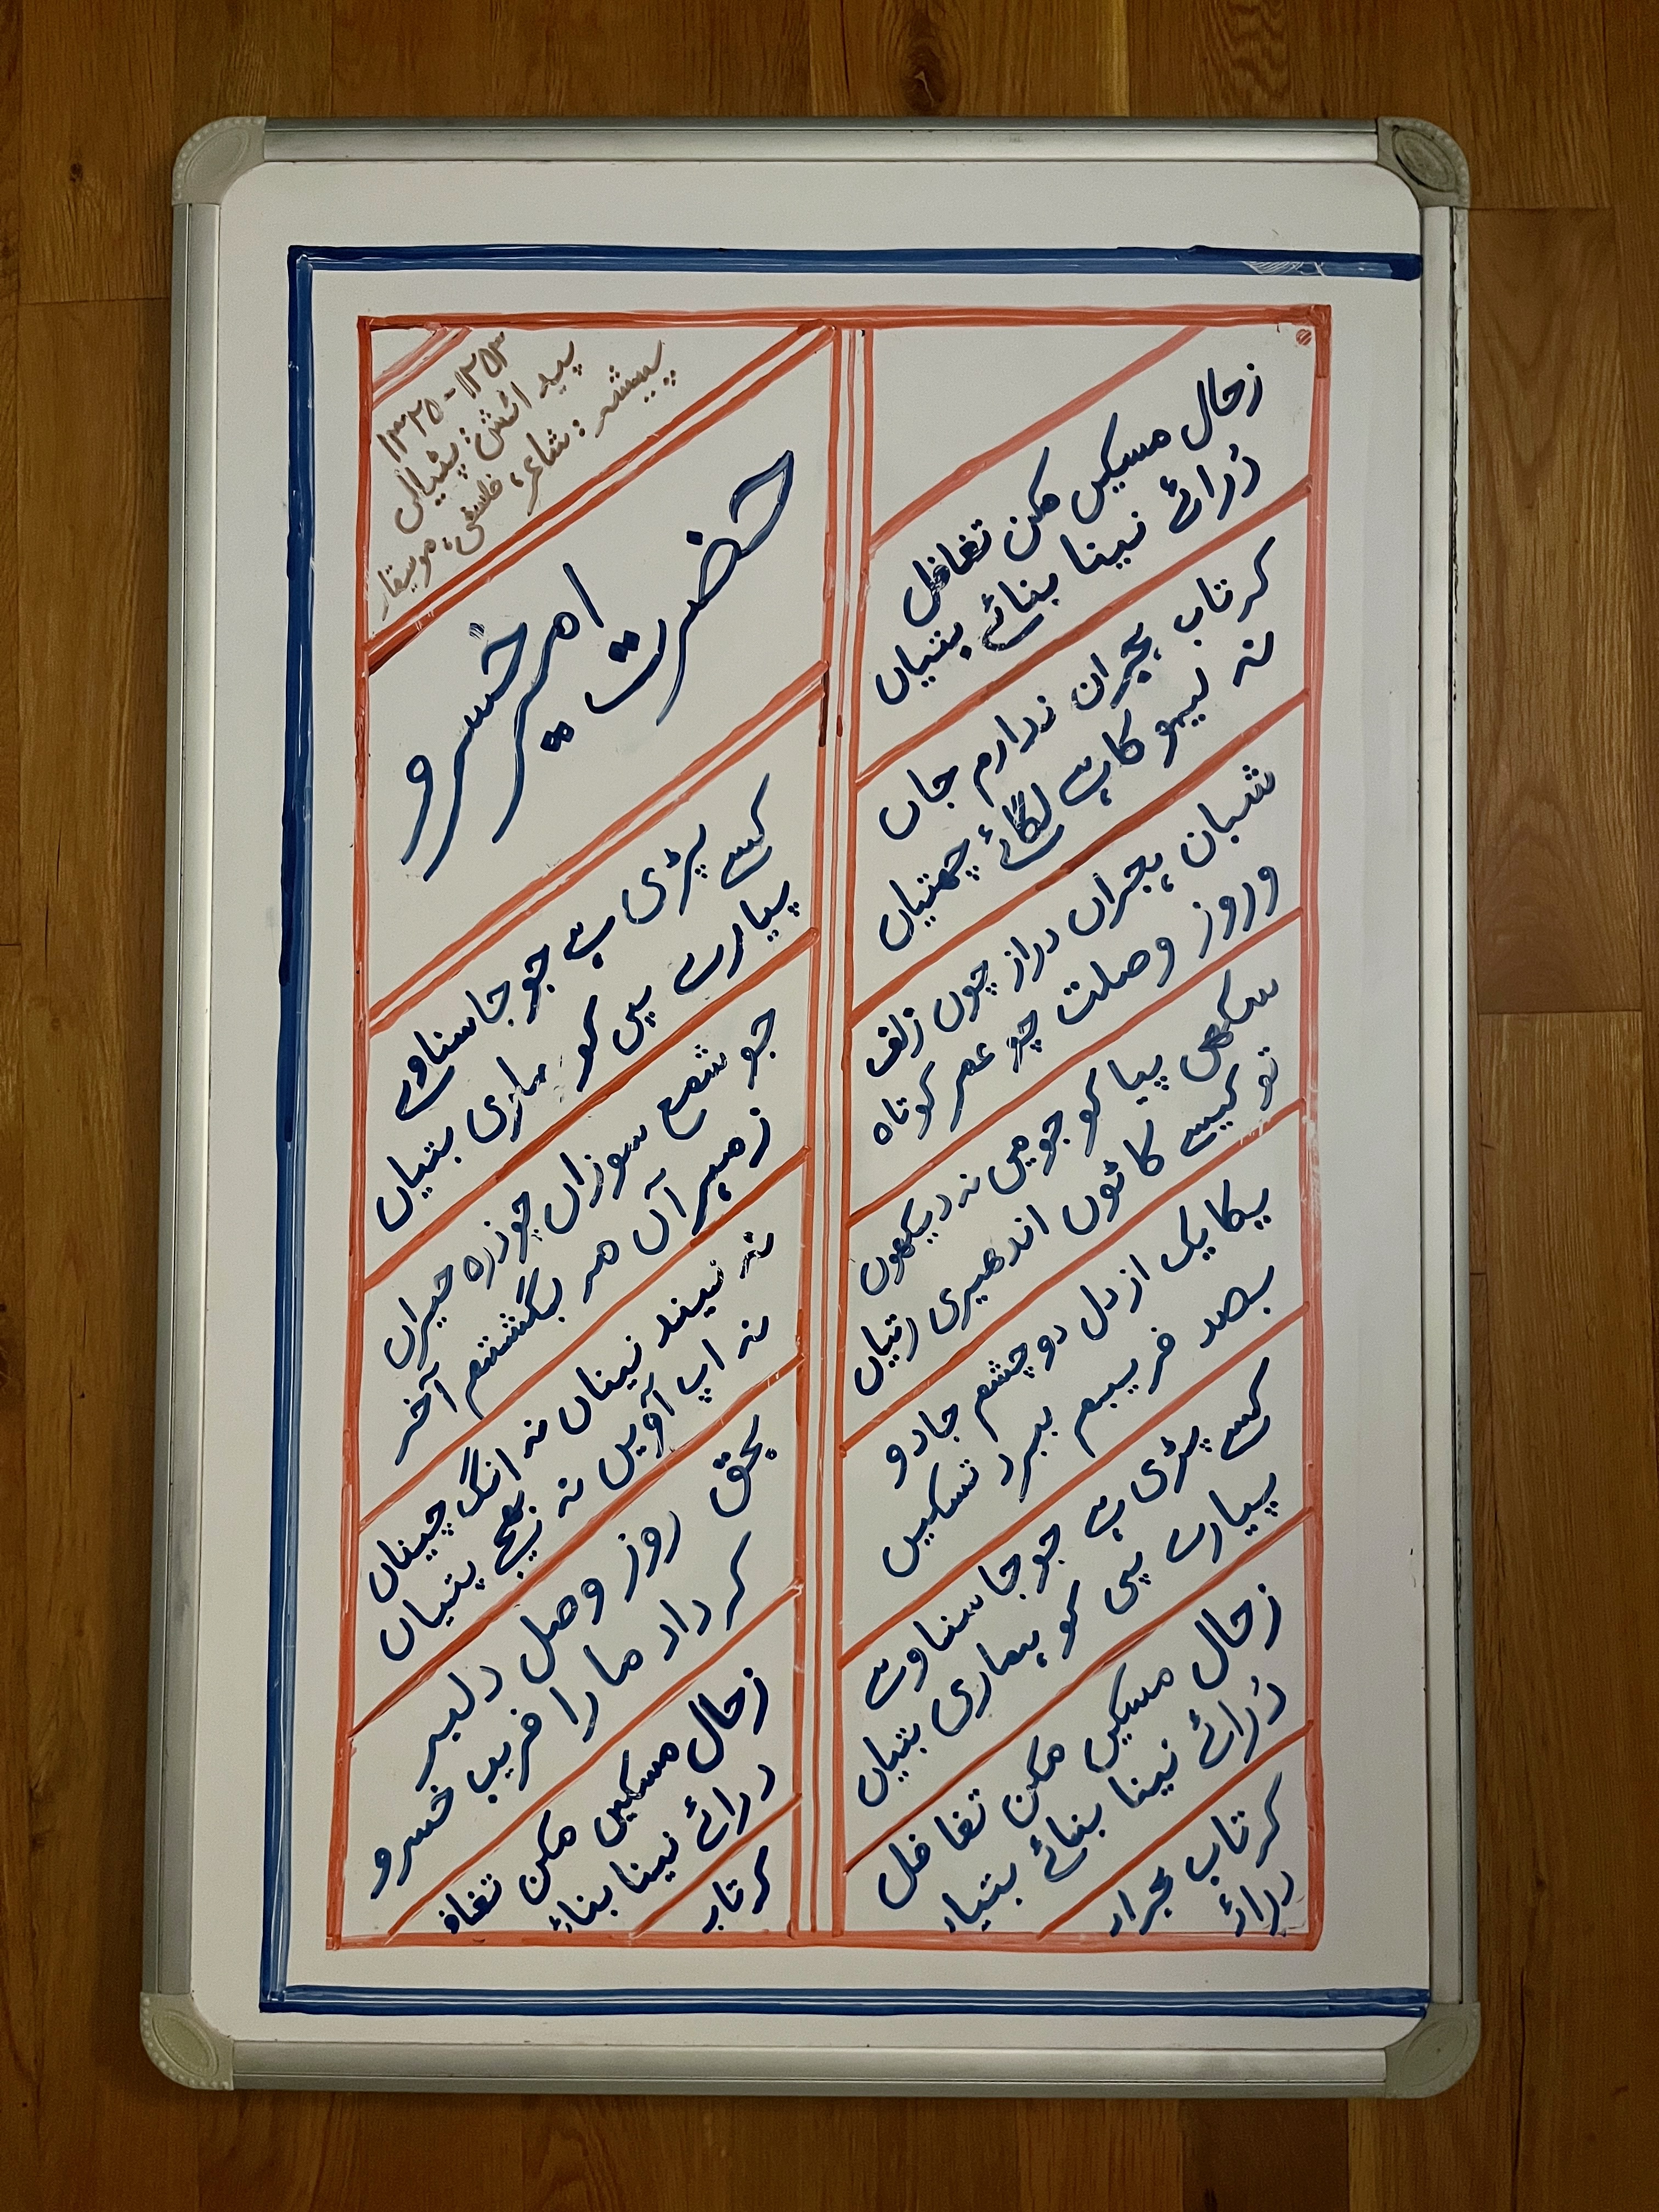 زحال مسکیں مکن تغافل
دُرائے نینا بنائے بتیاں
کہ تاب ہجراں ندارم جاں
نہ لیہو کاہے لگائے چھتیاں
شبان ہجراں دراز چوں زلف
وروز وصلت چو عمر کوتاہ
سکھی پیا کو جو میں نہ دیکھوں
تو کیسے کاٹوں اندھیری رتیاں
یکایک از دل دو چشم جادو
بصد فریبم ببرد تسکیں
کسے پڑی ہے جو جا سناوے
پیارے پی کو ہماری بتیاں
زحال مسکیں مکن تغافل
دُرائے نینا بنائے بتیاں
کہ تاب ہجراں
درائے
۱۲۵۳-۱۳۲۵
پیدائش: پٹیالی
پیشہ: شاعر، فلسفی، موسیقار
حضرت
امیر خسرو
کسے پڑی ہے جو جا سناوے
پیارے پی کو ہماری بتیاں
جو شمع سوزاں چو ذرہ حیراں
ز مہر آں مہ بگشتم آخر
نہ نیند نیناں نہ انگ چیناں
نہ آپ آویں نہ بھیجے پتیاں
بحق روز وصل دلبر
کہ داد ما را فریب خسرو
زحال مسکیں مکن تغاف
درائے نینا بنائے
کہ تاب